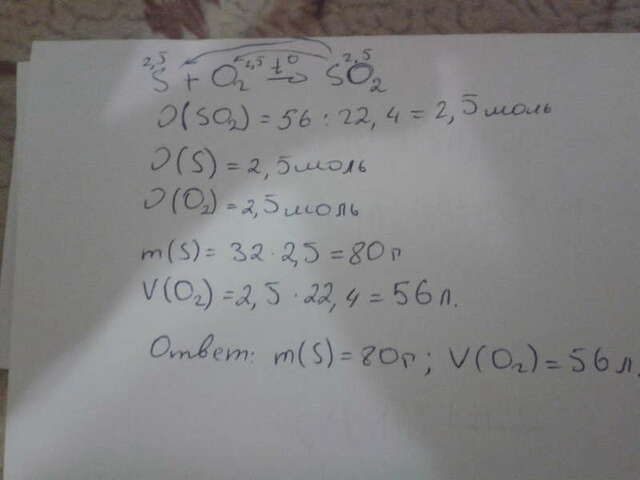 2,5 2,5 2,5
S + O₂ t° → SO₂
ν(SO₂) = 56 : 22,4 = 2,5 моль
ν(S) = 2,5 моль
ν(O₂) = 2,5 моль
m(S) = 32 · 2,5 = 80 г
V(O₂) = 2,5 · 22,4 = 56 л.
Ответ: m(S) = 80 г; V(O₂) = 56 л.